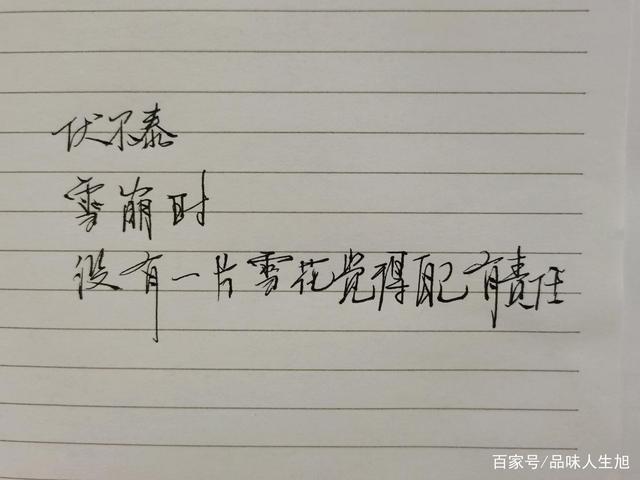 伏尔泰
雪崩时
没有一片雪花觉得自己有责任
百家号/品味人生旭